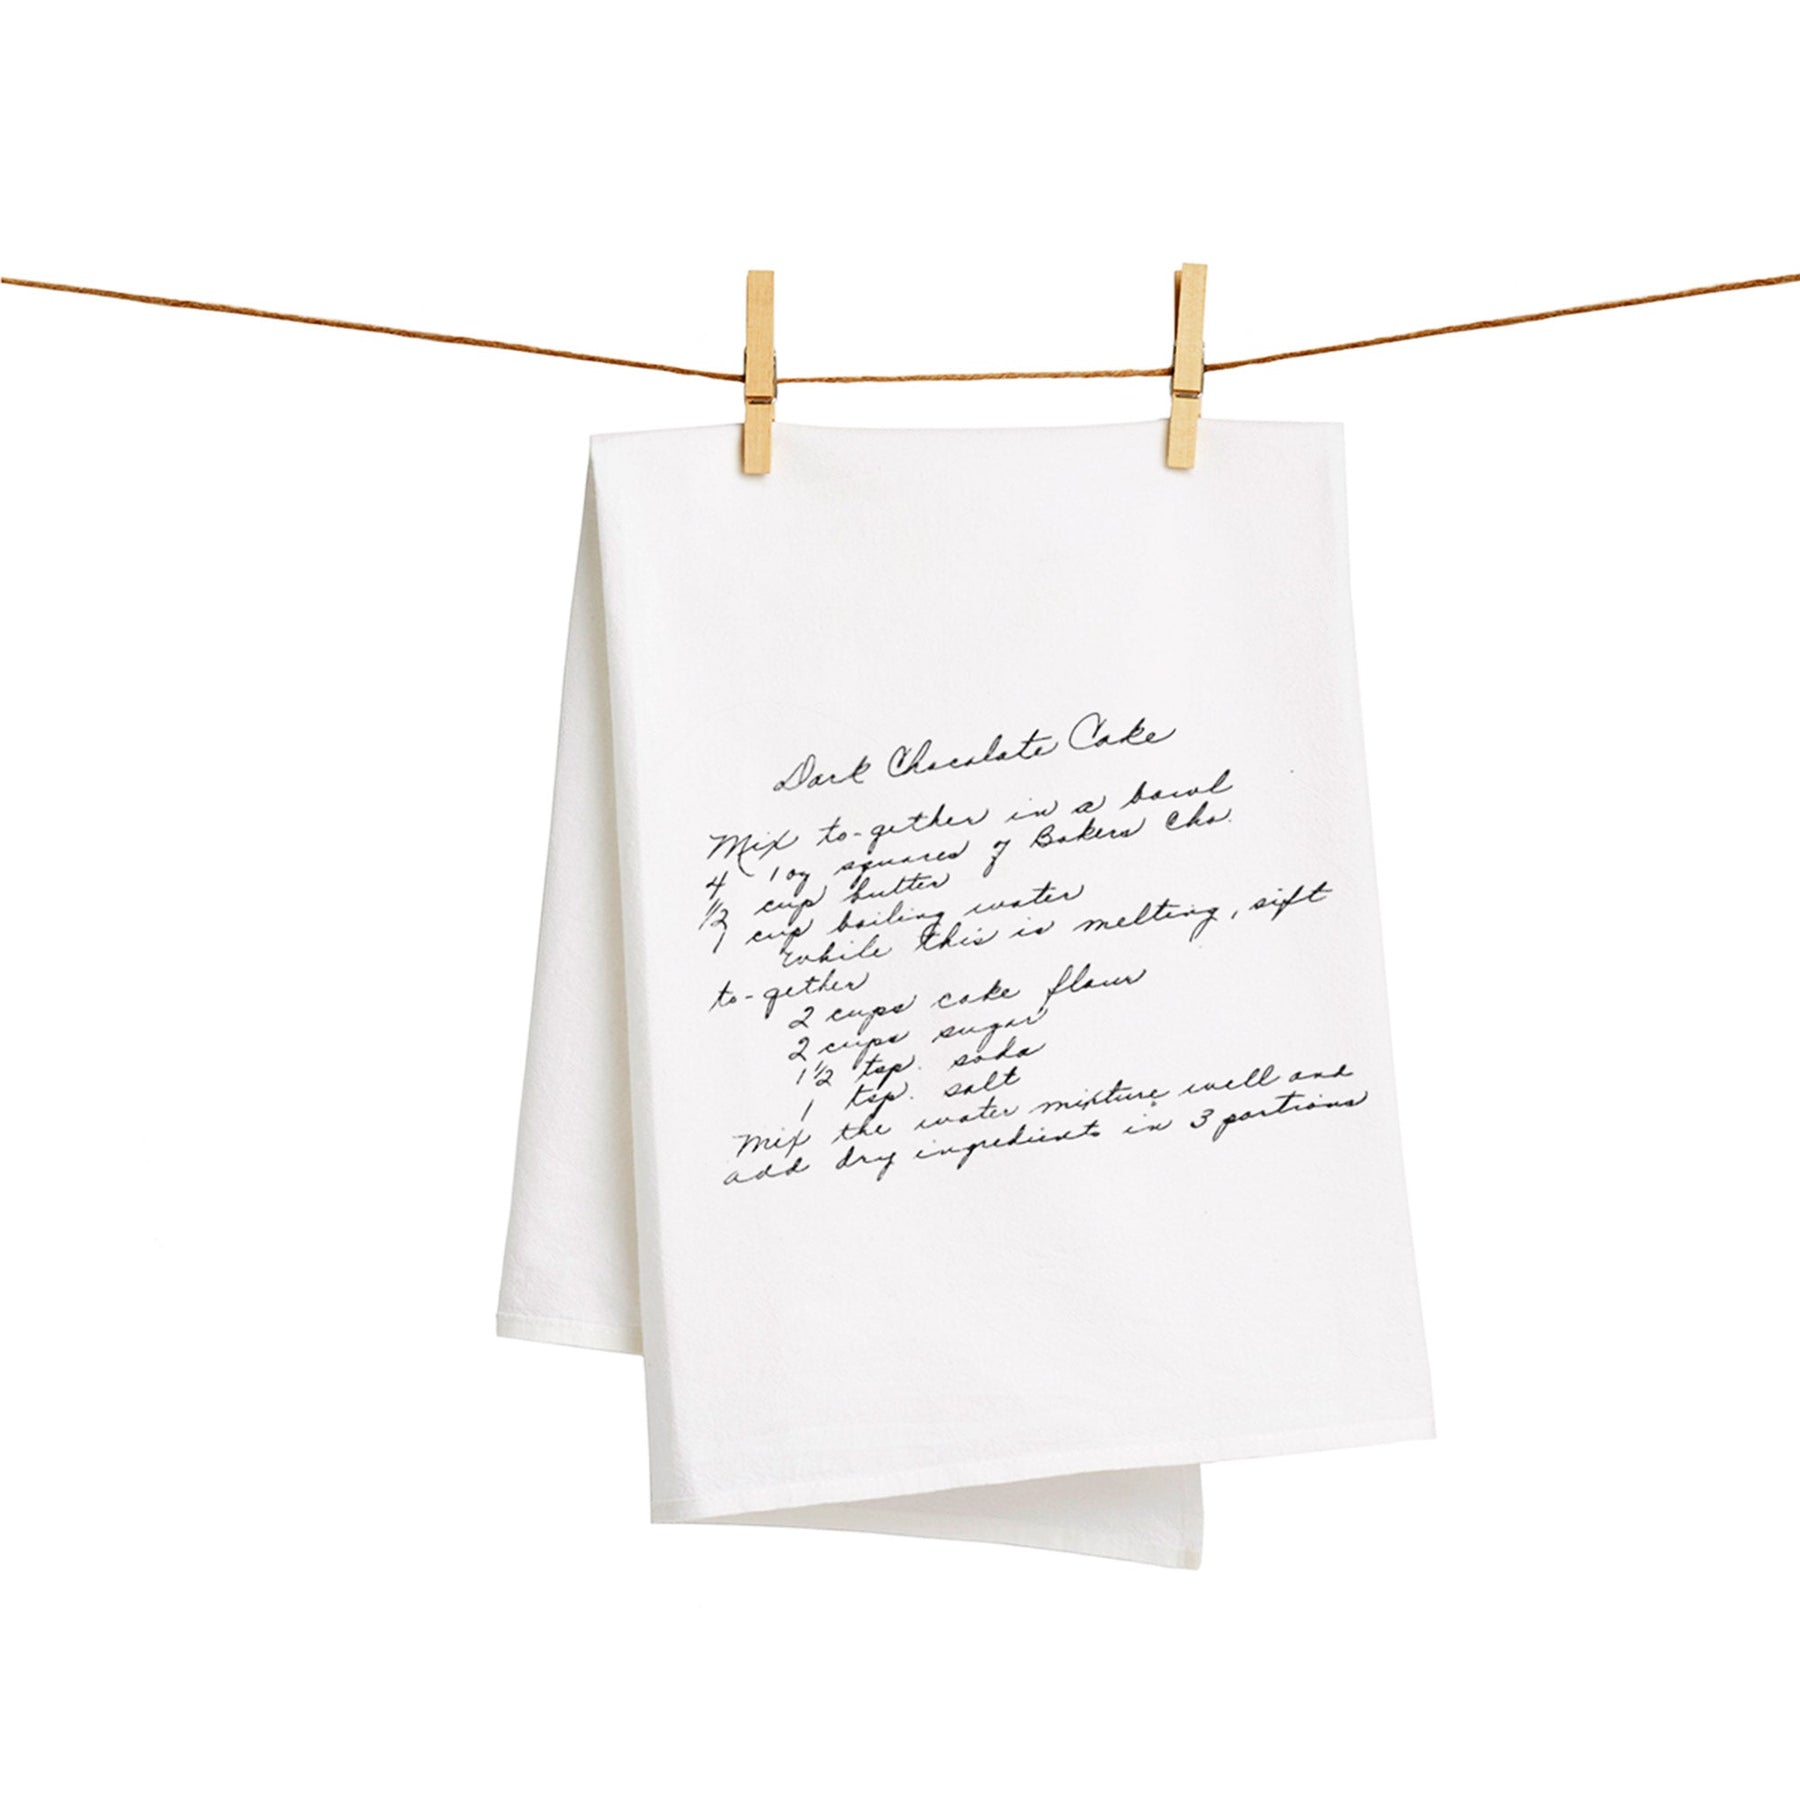 Dark Chocolate Cake
Mix to-gether in a bowl
4 1 oz squares of Bakers Cho.
1/2 cup butter
1 cup boiling water
While this is melting, sift
to-gether
2 cups cake flour
2 cups sugar
1 1/2 tsp. soda
1 tsp. salt
Mix the water mixture well and
add dry ingredients in 3 portions